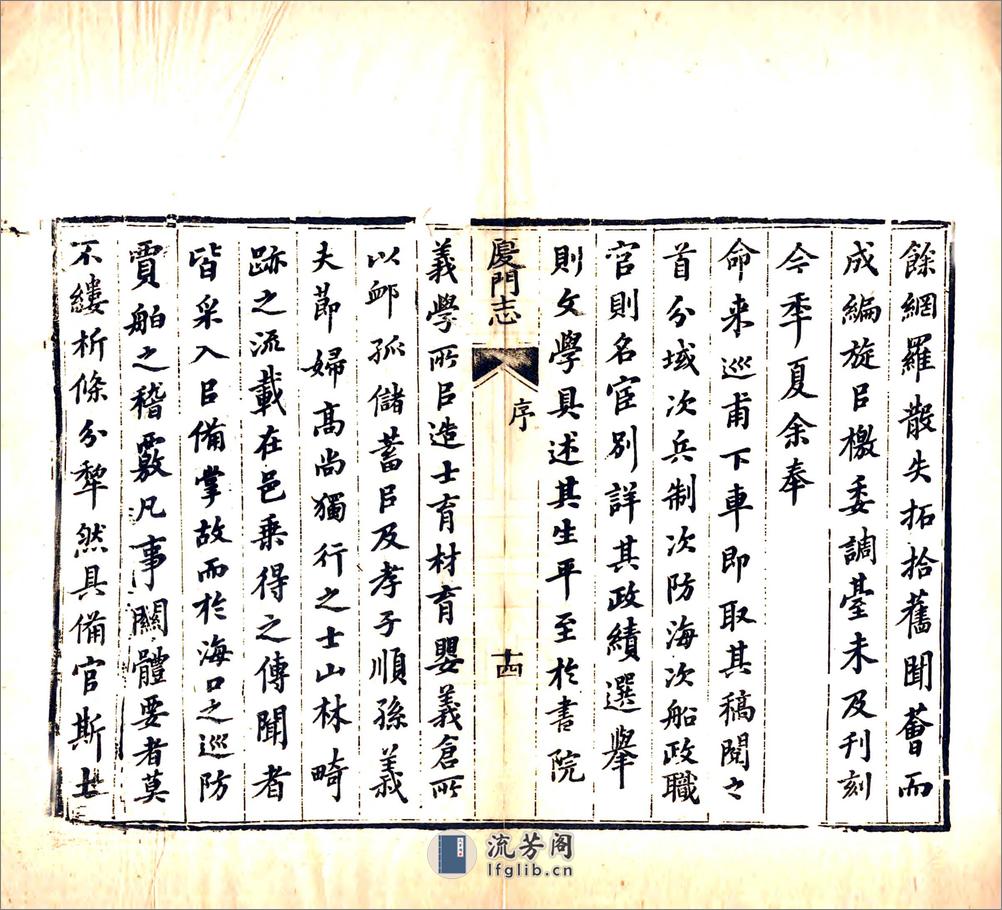 餘網羅散失拓拾舊聞薈而
成編旋㠯檄委調臺未及刊刻
今年夏余奉
命来巡甫下車即取其稿閱之
首分域次兵制次防海次船政職
官則名宦別詳其政績選舉
則文學具述其生平至於書院
廈門志
序
十四
義學所㠯造士育材育嬰義倉所
以卹孤儲蓄㠯及孝子順孫義
夫節婦高尚獨行之士山林畸
跡之流載在邑乗得之傳聞者
皆采入㠯備掌故而於海口之巡防
賈舶之稽覈凡事關體要者莫
不縷析條分犂然具備官斯土
流芳阁
lfglib.cn